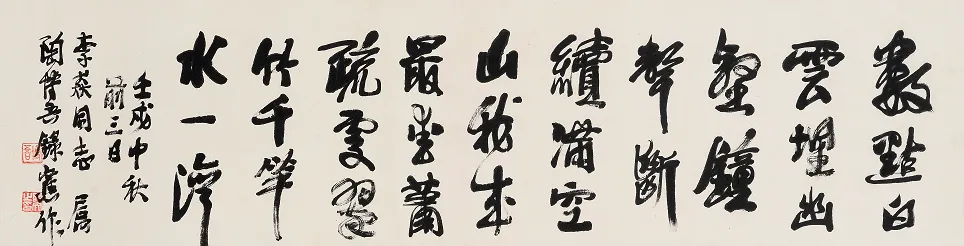 數點白
雲埋幽
壑鐘
聲斷
續滿空
山我來
最愛蕭
疏處翠
竹千竿
水一灣
壬戌中秋
前三日
李同志屬
陶博吾錄舊作